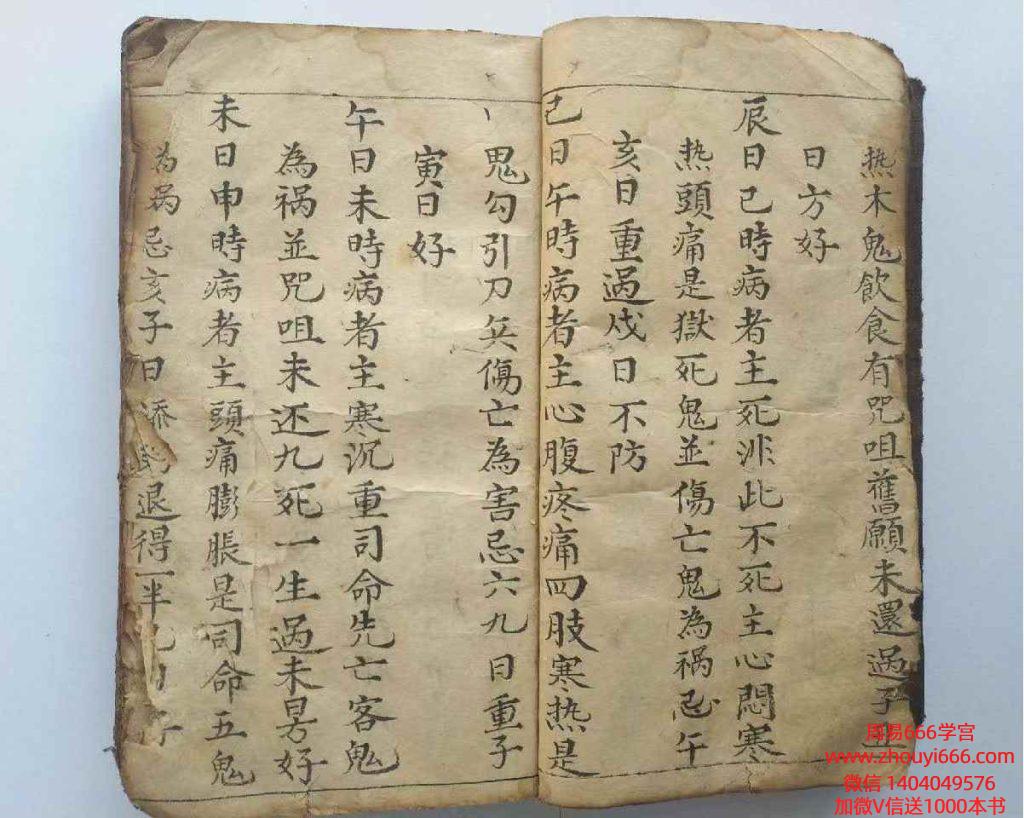 热木鬼飲食有咒咀舊願未還過子丑
日方好
辰日己時病者主死非此不死主心悶寒
热頭痛是獄死鬼並傷亡鬼為禍忌午
亥日重過戍日不防
己日午時病者主心腹疼痛四肢寒热是
鬼勾引刀兵傷亡為害忌六九日重子
寅日好
午日未時病者主寒沉重司命先亡客鬼
為禍並咒咀未还九死一生過未日方好
未日申時病者主頭痛膨脹是司命五鬼
為禍忌亥子日添退得一半
周易666学宫
www.zhouyi666.com
微信 1404049576
加微V信送1000本书